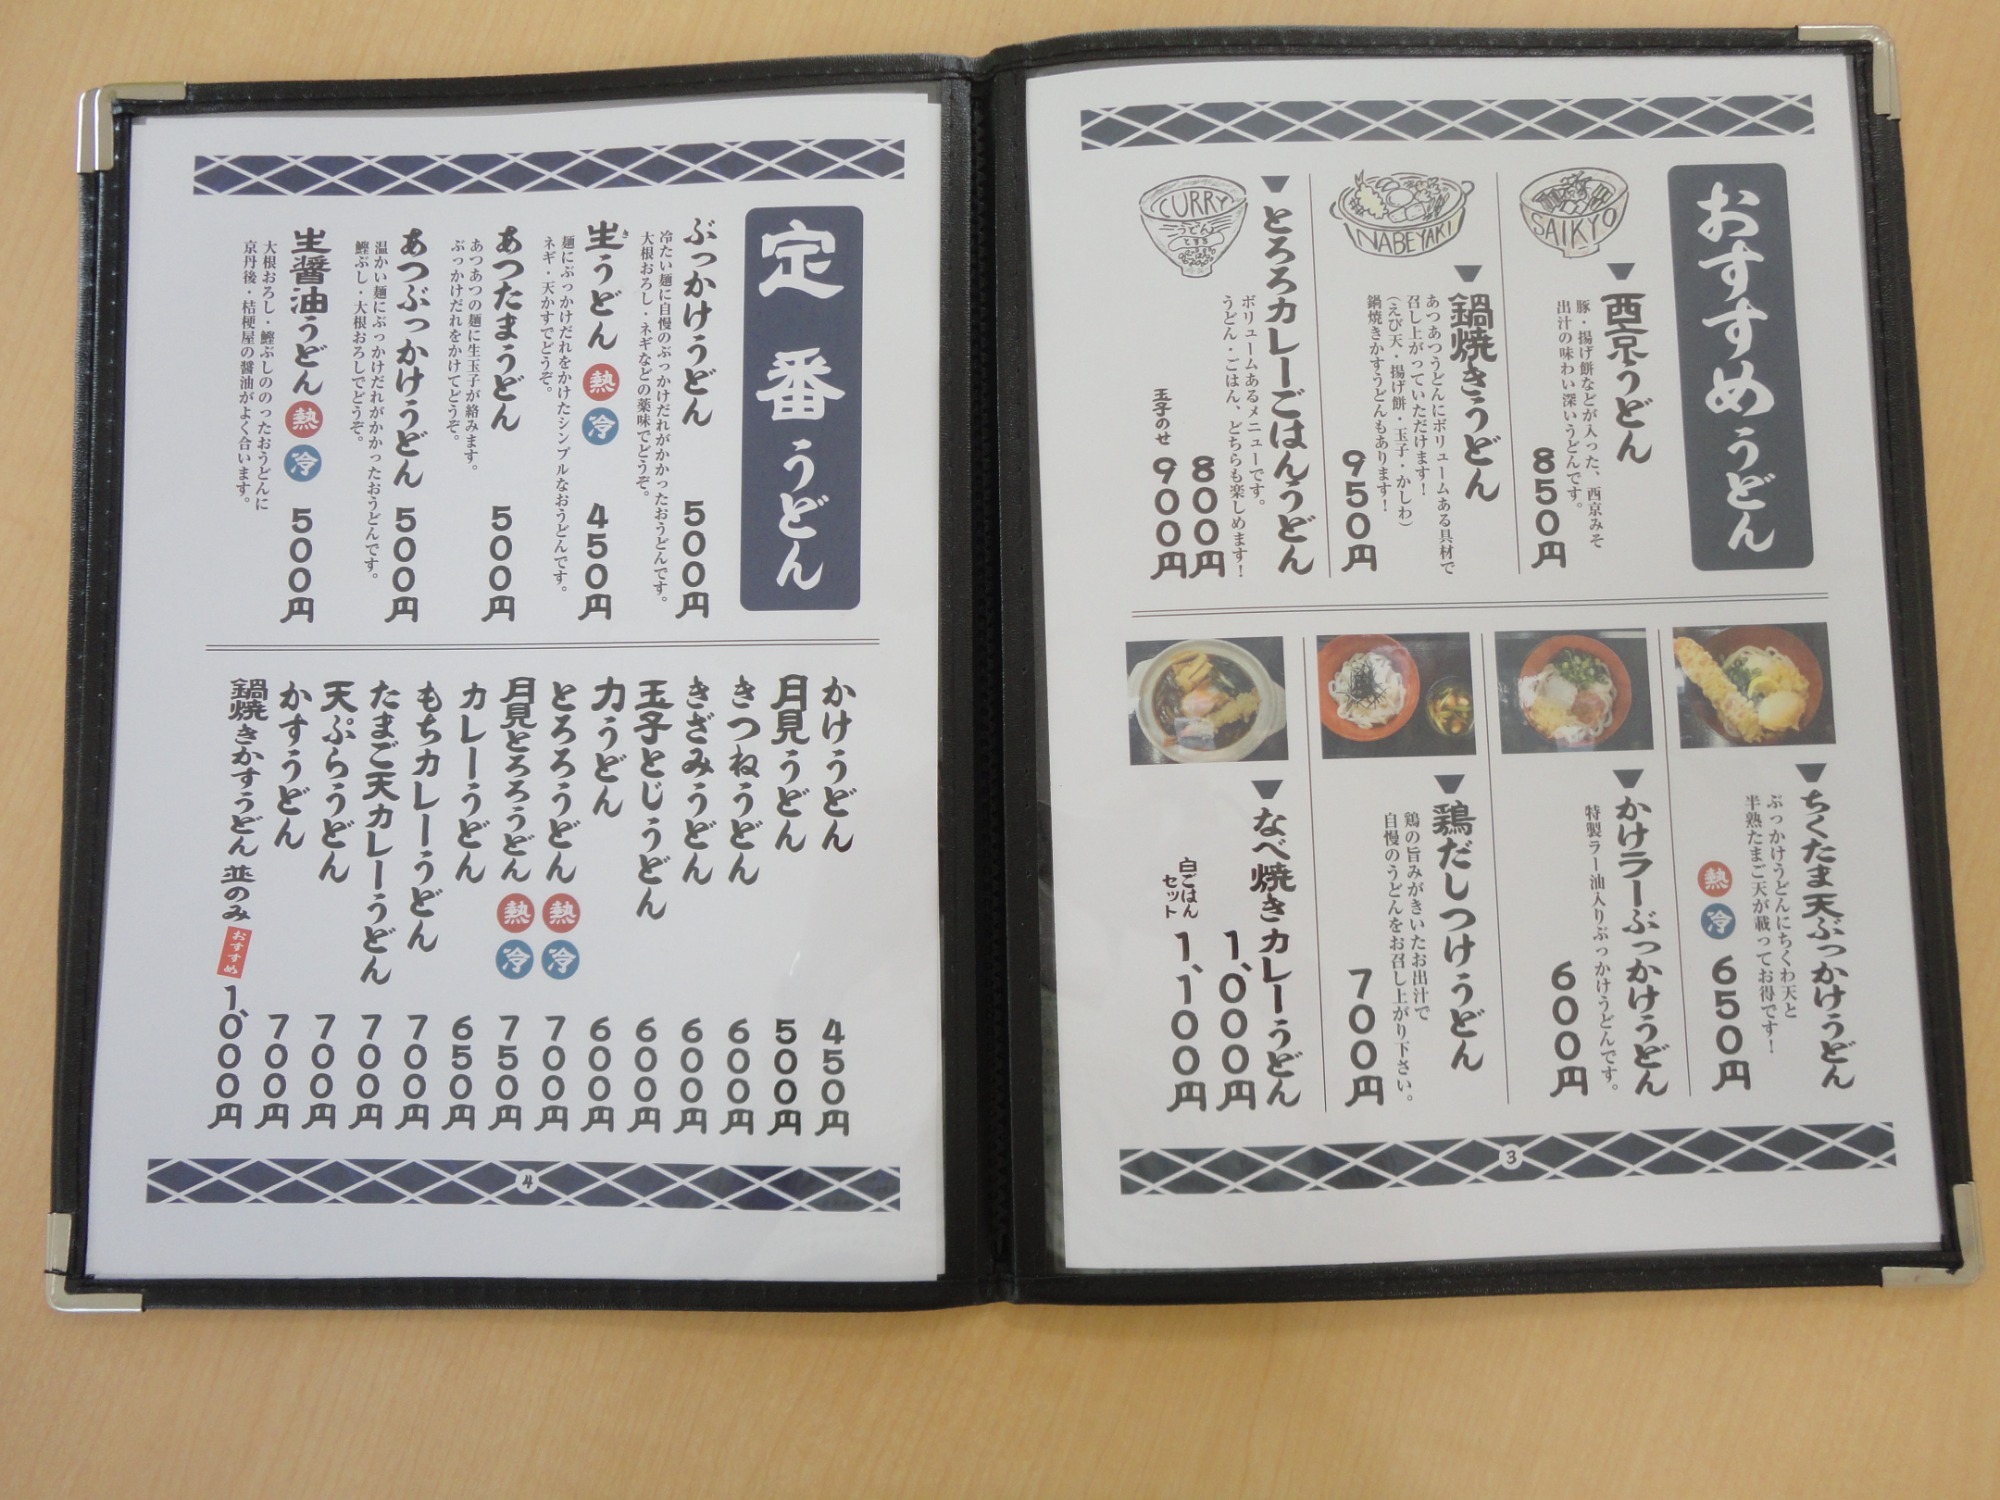 おすすめうどん
SAIKYO
西京うどん
豚・揚げ餅などが入った、西京みそ
出汁の味わい深いうどんです。
850円
NABEYAKI
鍋焼きうどん
あつあつうどんにボリュームある具材で
召し上がっていただけます！
（えび天・揚げ餅・玉子・かしわ）
鍋焼きかすうどんもあります！
950円
CURRY
うどん
とろろ
とろろカレーごはんうどん
ボリュームあるメニューです。
うどん・ごはん、どちらも楽しめます！
800円
玉子のせ 900円
ちくたま天ぶっかけうどん
ぶっかけうどんにちくわ天と
半熟たまご天が載ってお得です！
熱 冷 650円
かけラーぶっかけうどん
特製ラー油入りぶっかけうどんです。
600円
鶏だしつけうどん
鶏の旨みがきいたお出汁で
自慢のうどんをお召し上がり下さい。
700円
なべ焼きカレーうどん
1,000円
白ごはん
セット
1,100円
3
定番うどん
ぶっかけうどん 500円
冷たい麺に自慢のぶっかけだれがかかったおうどんです。
大根おろし・ネギなどの薬味でどうぞ。
生うどん 熱 冷 450円
き
麺にぶっかけだれをかけたシンプルなおうどんです。
ネギ・天かすでどうぞ。
あつたまうどん 500円
あつあつの麺に生玉子が絡みます。
ぶっかけだれをかけてどうぞ。
あつぶっかけうどん 500円
温かい麺にぶっかけだれがかかったおうどんです。
鰹ぶし・大根おろしでどうぞ。
生醤油うどん 熱 冷 500円
大根おろし・鰹ぶしののったおうどんに
京丹後・桔梗屋の醤油がよく合います。
かけうどん 450円
月見うどん 500円
きつねうどん 600円
きざみうどん 600円
玉子とじうどん 600円
力うどん 600円
とろろうどん 熱 冷 700円
月見とろろうどん 熱 冷 750円
カレーうどん 650円
もちカレーうどん 700円
たまご天カレーうどん 700円
天ぷらうどん 700円
かすうどん 700円
鍋焼きかすうどん 並のみ おすすめ 1,000円
4